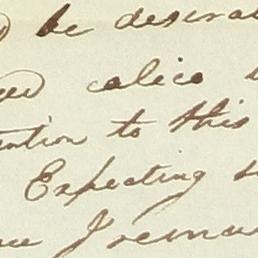 be desira
calico
ention to this
Expecting
I remai